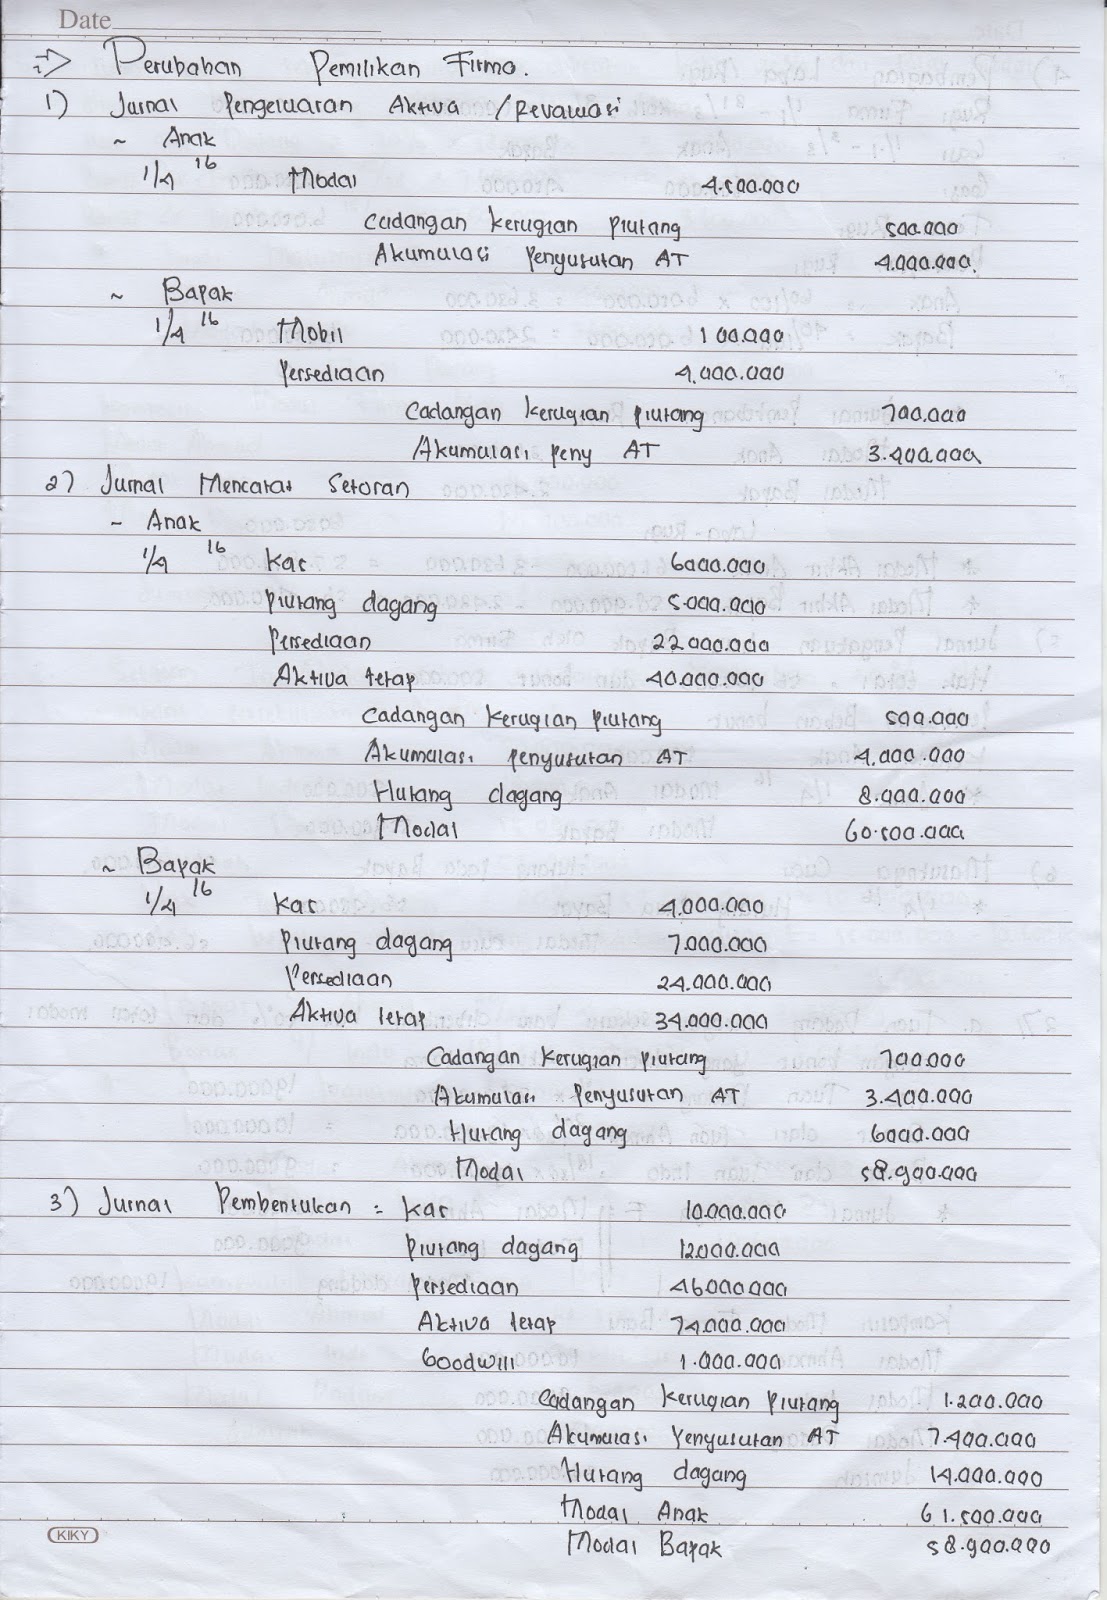 Date
⇒ Perubahan Pemilikan Firma.
1) Jurnal Pengeluaran Aktiva / Revaluasi
~ Anak
1/4 16 Modal 4.500.000
Cadangan kerugian piutang 500.000
Akumulasi penyusutan AT 4.000.000.
~ Bapak
1/4 16 Mobil 100.000
Persediaan 4.000.000
Cadangan kerugian piutang 700.000
Akumulasi peny AT 3.400.000
2) Jurnal Mencatat Setoran
~ Anak
1/4 16 Kas 6000.000
Piutang dagang 5.000.000
Persediaan 22000.000
Aktiva tetap 40.000.000
Cadangan kerugian piutang 500.000
Akumulasi penyusutan AT 4.000.000
Hutang dagang 8.000.000
Modal 60.500.000
~ Bapak
1/4 16 Kas 4.000.000
Piutang dagang 7.000.000
Persediaan 24.000.000
Aktiva tetap 34.000.000
Cadangan kerugian piutang 700.000
Akumulasi penyusutan AT 3.400.000
Hutang dagang 6000.000
Modal 58.900.000
3) Jurnal Pembentukan = Kas 10.000.000
Piutang dagang 12000.000
Persediaan 46000000
Aktiva tetap 74.000.000
Goodwill 1.000.000
Cadangan kerugian piutang 1.200.000
Akumulasi Penyusutan AT 7.400.000
Hutang dagang 14.000.000
Modal Anak 61.500.000
KIKY
Modal Bapak 58.900.000